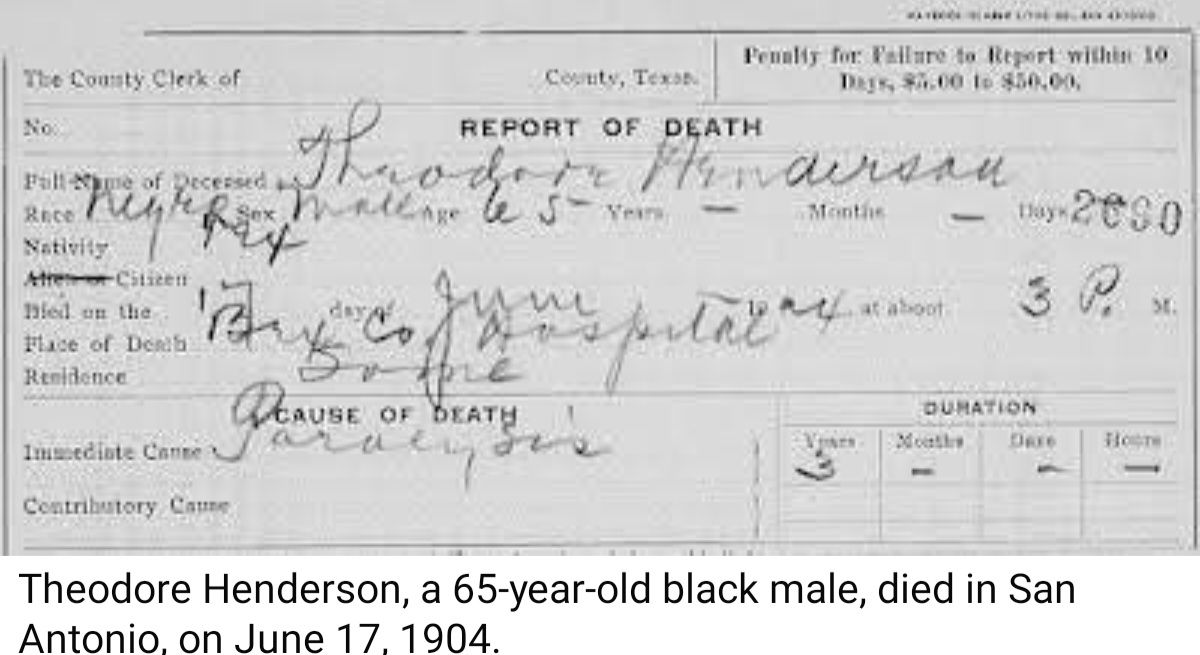 The County Clerk of County, Texas.
Penalty for Failure to Report within 10
Days, $5.00 to $50.00.
No.
REPORT OF DEATH
Full Name of Deceased Theodore Henderson
Race Negro Sex Male Age 65 Years — Months — Days
Nativity Tex
Citizen
Died on the 17 day of June 1904 at about 3 P. M.
Place of Death Bex Co Hospital
Residence Same
CAUSE OF DEATH
DURATION
Immediate Cause Paralysis
Years Months Days Hours
3 — — —
Contributory Cause
Theodore Henderson, a 65-year-old black male, died in San
Antonio, on June 17, 1904.